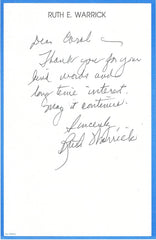 RUTH E. WARRICK
Dear Carol
Thank you for your
kind words and
long time interest.
May it continue.
Sincerely
Ruth Warrick